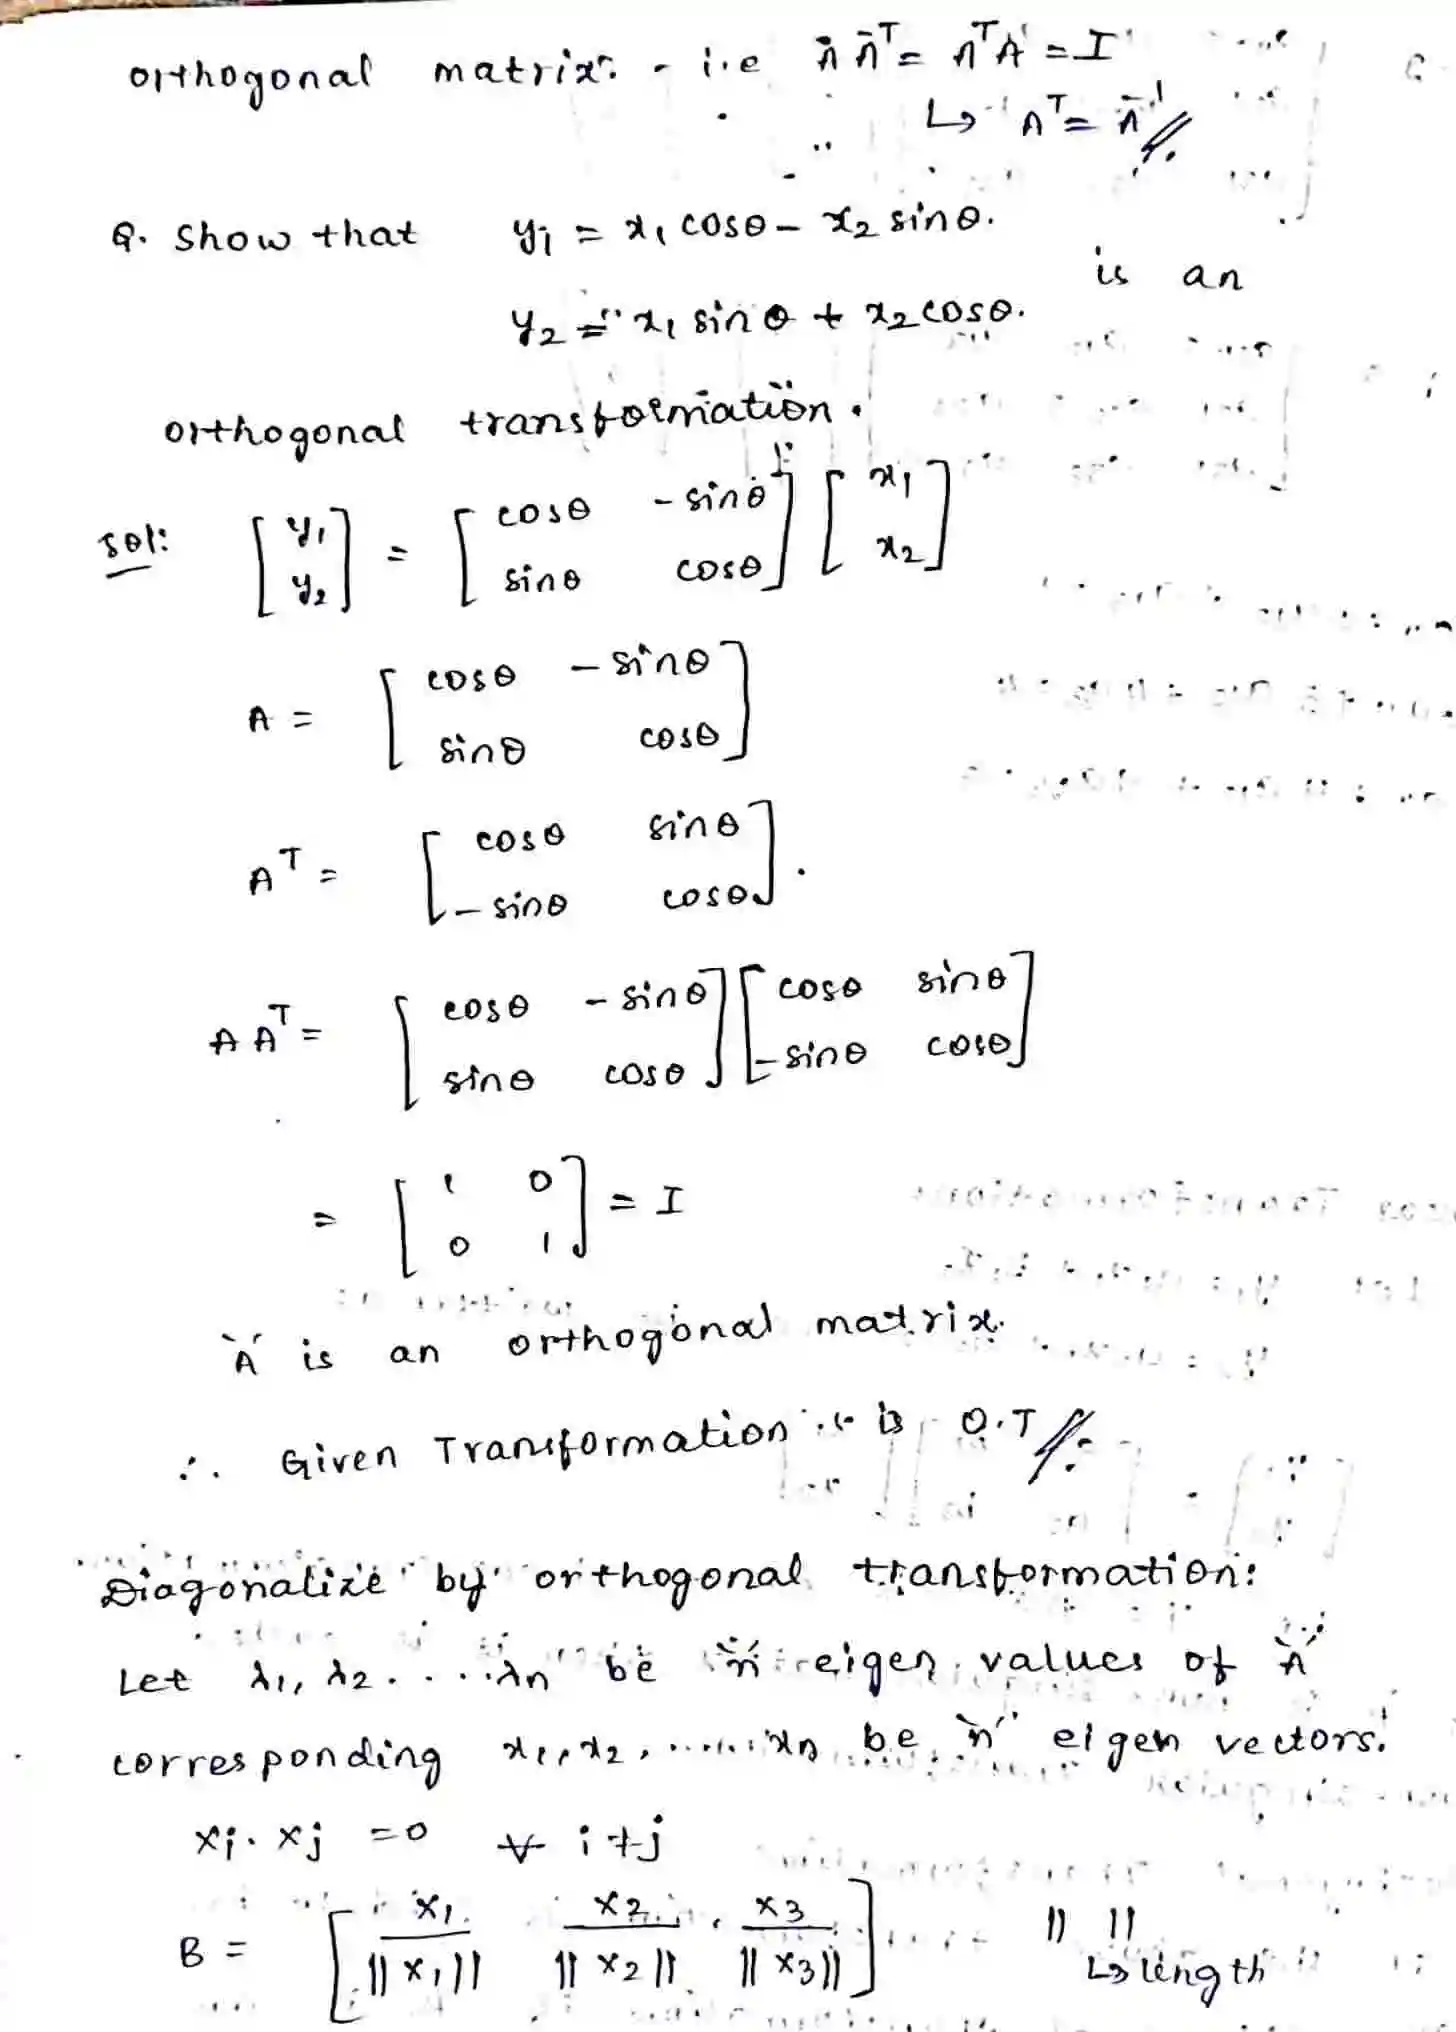 orthogonal matrix. - i.e A Aᵀ = Aᵀ A = I
↳ Aᵀ = A⁻¹ //.
Q. Show that y₁ = x₁ cosθ - x₂ sinθ.
is an
y₂ = x₁ sinθ + x₂ cosθ.
orthogonal transformation.
sol: [y₁ y₂] = [cosθ -sinθ sinθ cosθ] [x₁ x₂]
A = [cosθ -sinθ sinθ cosθ]
Aᵀ = [cosθ sinθ -sinθ cosθ].
A Aᵀ = [cosθ -sinθ sinθ cosθ] [cosθ sinθ -sinθ cosθ]
= [1 0 0 1] = I
'A' is an orthogonal matrix.
∴ Given Transformation is O.T //.
Diagonalize by orthogonal transformation:
Let λ₁, λ₂ ....λn be 'n' eigen values of 'A'
corresponding x₁, x₂, ......xn be 'n' eigen vectors.
xi . xj = 0 ∀ i ≠ j
B = [x₁/||x₁|| x₂/||x₂|| x₃/||x₃||] || ||
↳ length